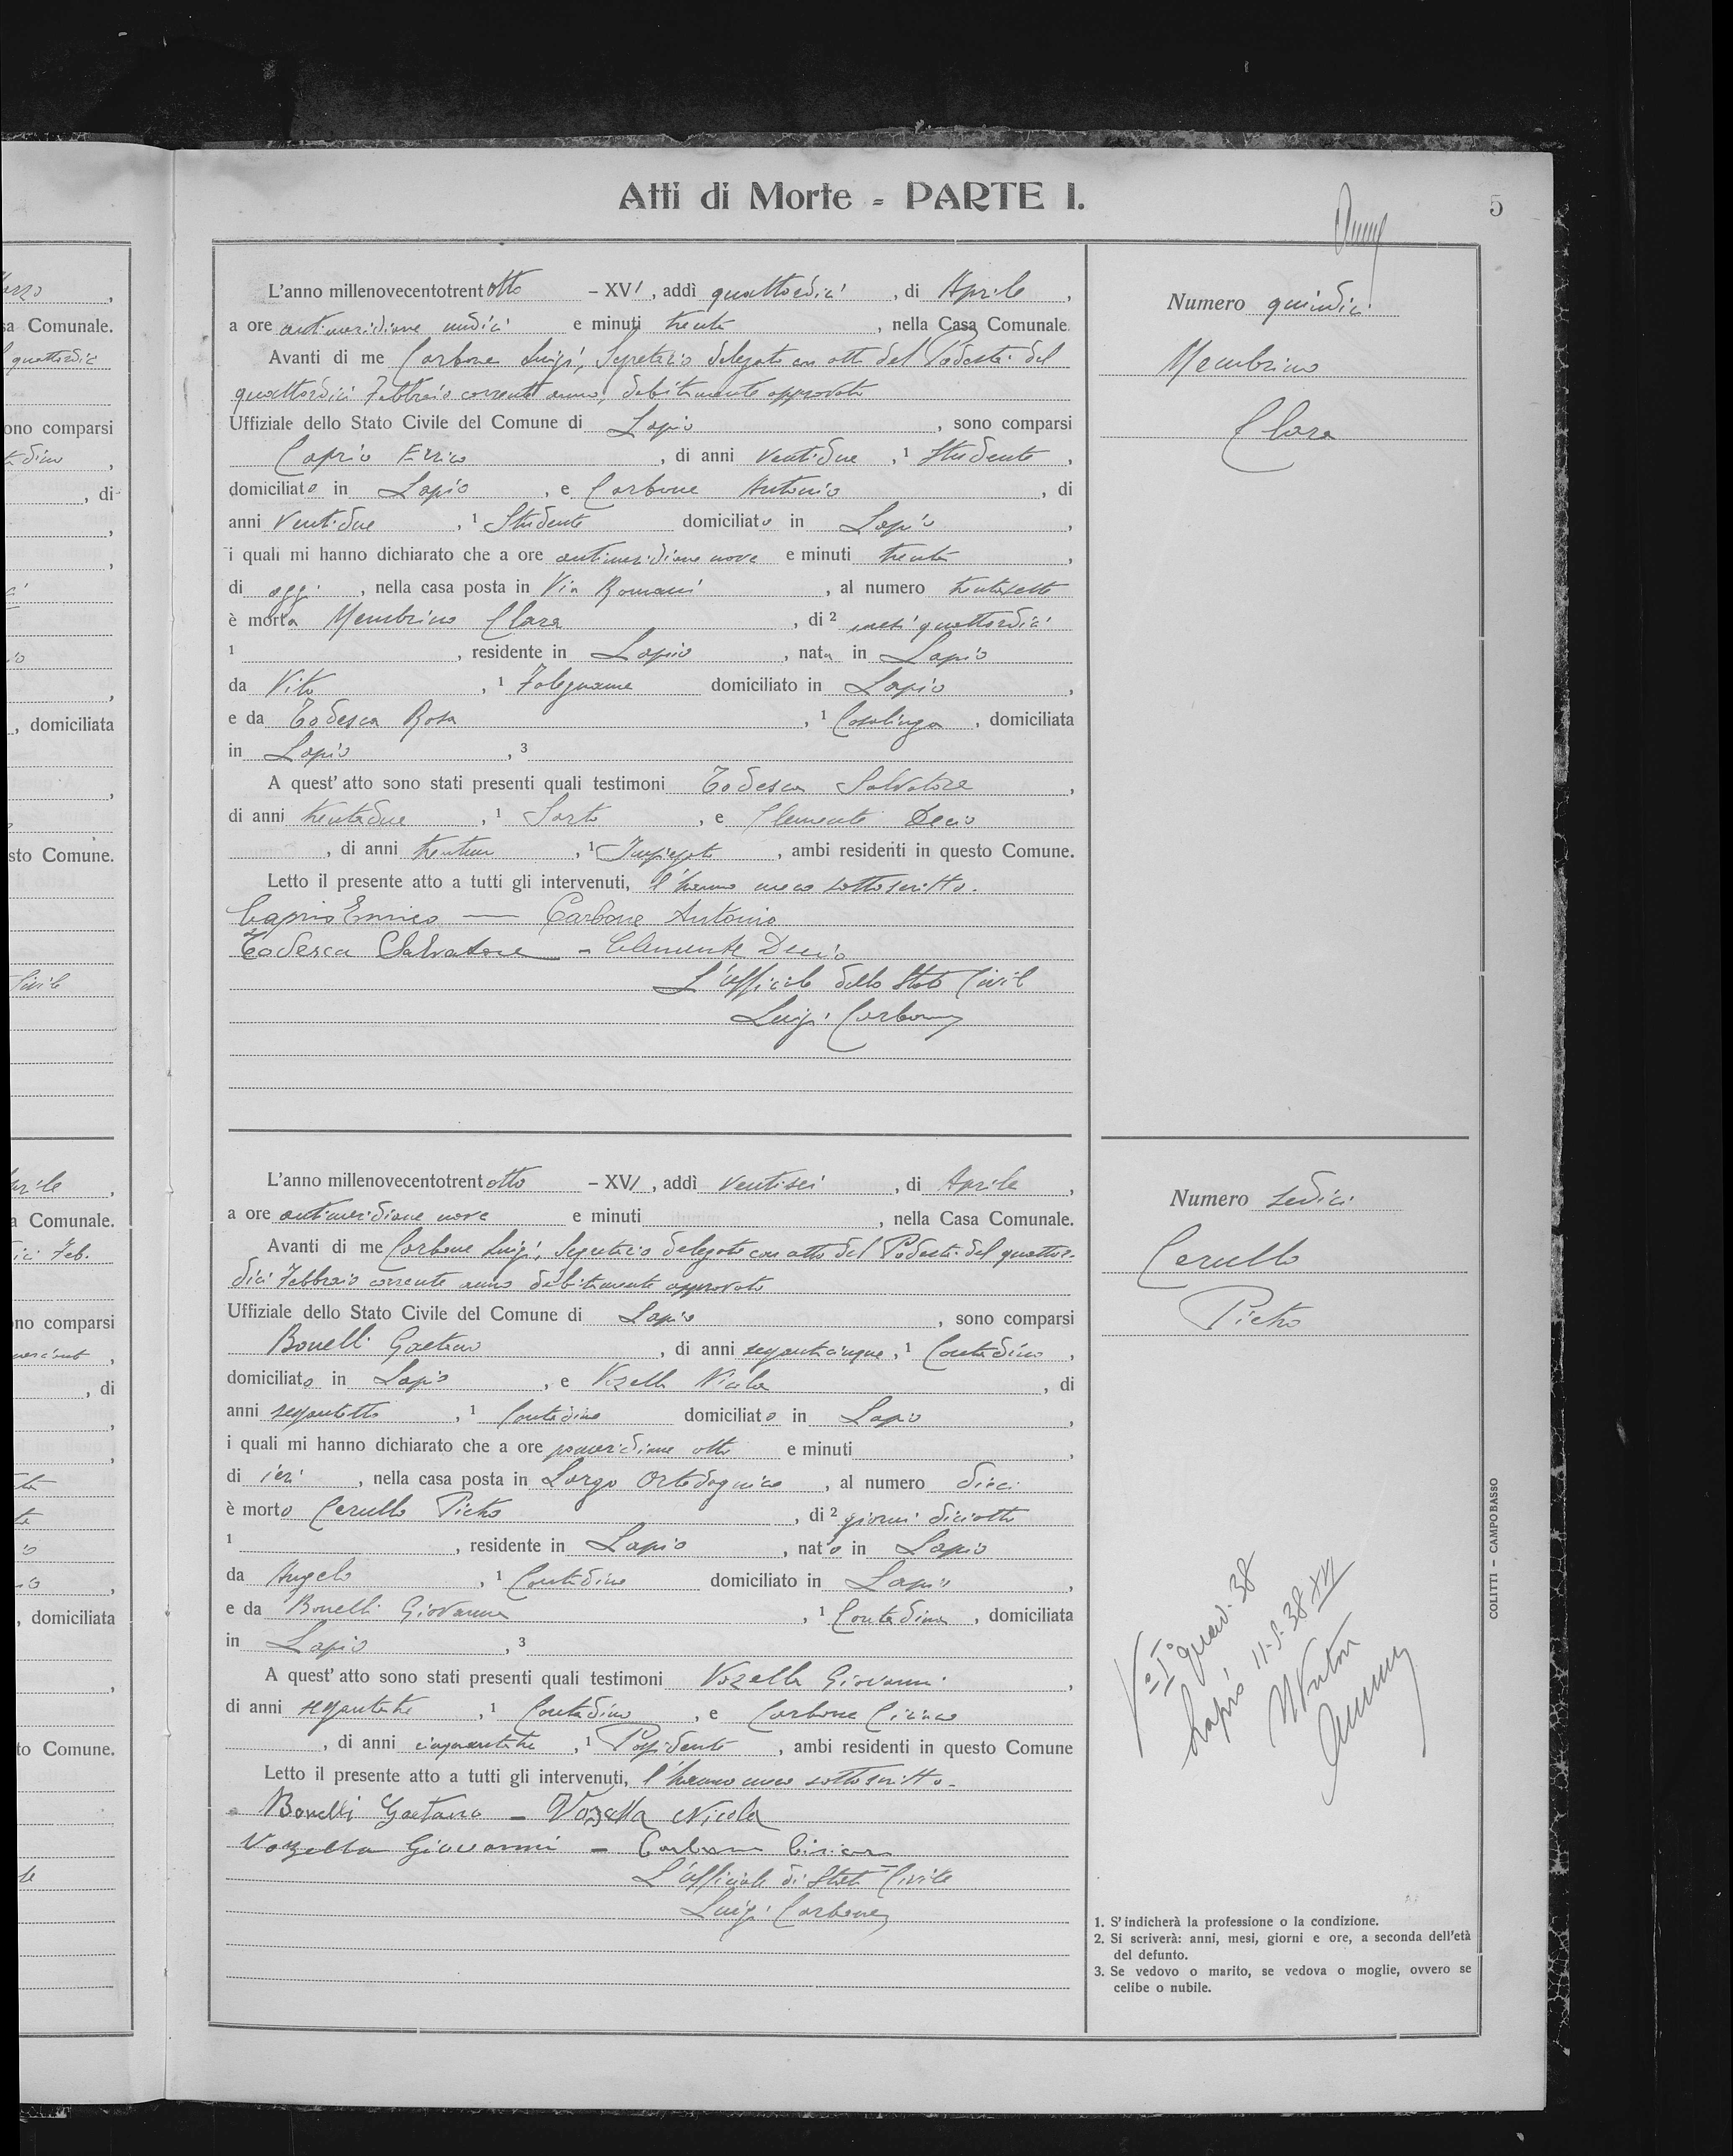 Atti di Morte - PARTE I.
5
L'anno millenovecentotrentotto – XVI, addì quattordici, di Aprile,
a ore antimeridiane undici e minuti trenta, nella Casa Comunale.
Avanti di me Carbone Luigi, Segretario delegato con atto del Podestà del
quattordici Febbraio corrente anno, debitamente approvato
Uffiziale dello Stato Civile del Comune di Lapio, sono comparsi
Caprio Errico, di anni ventidue, 1 Studente,
domiciliato in Lapio, e Carbone Antonio, di
anni ventidue, 1 Studente domiciliato in Lapio,
i quali mi hanno dichiarato che a ore antimeridiane nove e minuti trenta,
di oggi, nella casa posta in Via Romani, al numero trentasette
è morta Membrino Clara, di 2 mesi quattordici
1 , residente in Lapio, nata in Lapio
da Vito, 1 Falegname domiciliato in Lapio,
e da Todesca Rosa, 1 Casalinga, domiciliata
in Lapio, 3
A quest'atto sono stati presenti quali testimoni Todesca Salvatore,
di anni trentadue, 1 Sarto, e Clemente Decio
, di anni trentun, 1 Impiegato, ambi residenti in questo Comune.
Letto il presente atto a tutti gli intervenuti, l'hanno meco sottoscritto.
Caprio Enrico — Carbone Antonio
Todesca Salvatore – Clemente Decio
L'ufficiale dello Stato Civile
Luigi Carbone
Numero quindici
Membrino
Clara
L'anno millenovecentotrentotto – XVI, addì ventisei, di Aprile,
a ore antimeridiane nove e minuti , nella Casa Comunale.
Avanti di me Carbone Luigi, Segretario delegato con atto del Podestà del quattor-
dici Febbraio corrente anno debitamente approvato
Uffiziale dello Stato Civile del Comune di Lapio, sono comparsi
Bonelli Gaetano, di anni sessanticinque, 1 Contadino,
domiciliato in Lapio, e Vozella Nicola, di
anni sessantotto, 1 Contadino domiciliato in Lapio,
i quali mi hanno dichiarato che a ore pomeridiane otto e minuti ,
di ieri, nella casa posta in Largo, al numero dieci
è morto Cerullo Pietro, di 2 giorni diciotto
1 , residente in Lapio, nato in Lapio
da Angelo, 1 Contadino domiciliato in Lapio,
e da Bonelli Giovanna, 1 Contadina, domiciliata
in Lapio, 3
A quest'atto sono stati presenti quali testimoni Vozella Giovanni,
di anni sessantatre, 1 Contadino, e Carbone Ciriaco
, di anni cinquantatre, 1 Possidente, ambi residenti in questo Comune
Letto il presente atto a tutti gli intervenuti, l'hanno meco sottoscritto.
Bonelli Gaetano – Vozella Nicola
Vozella Giovanni – Carbone Ciriaco
L'ufficiale di Stato Civile
Luigi Carbone
Numero sedici
Cerullo
Pietro
Lapio, 11-5-38 XVI
1. S'indicherà la professione o la condizione.
2. Si scriverà: anni, mesi, giorni e ore, a seconda dell'età
del defunto.
3. Se vedovo o marito, se vedova o moglie, ovvero se
celibe o nubile.
COLITTI – CAMPOBASSO